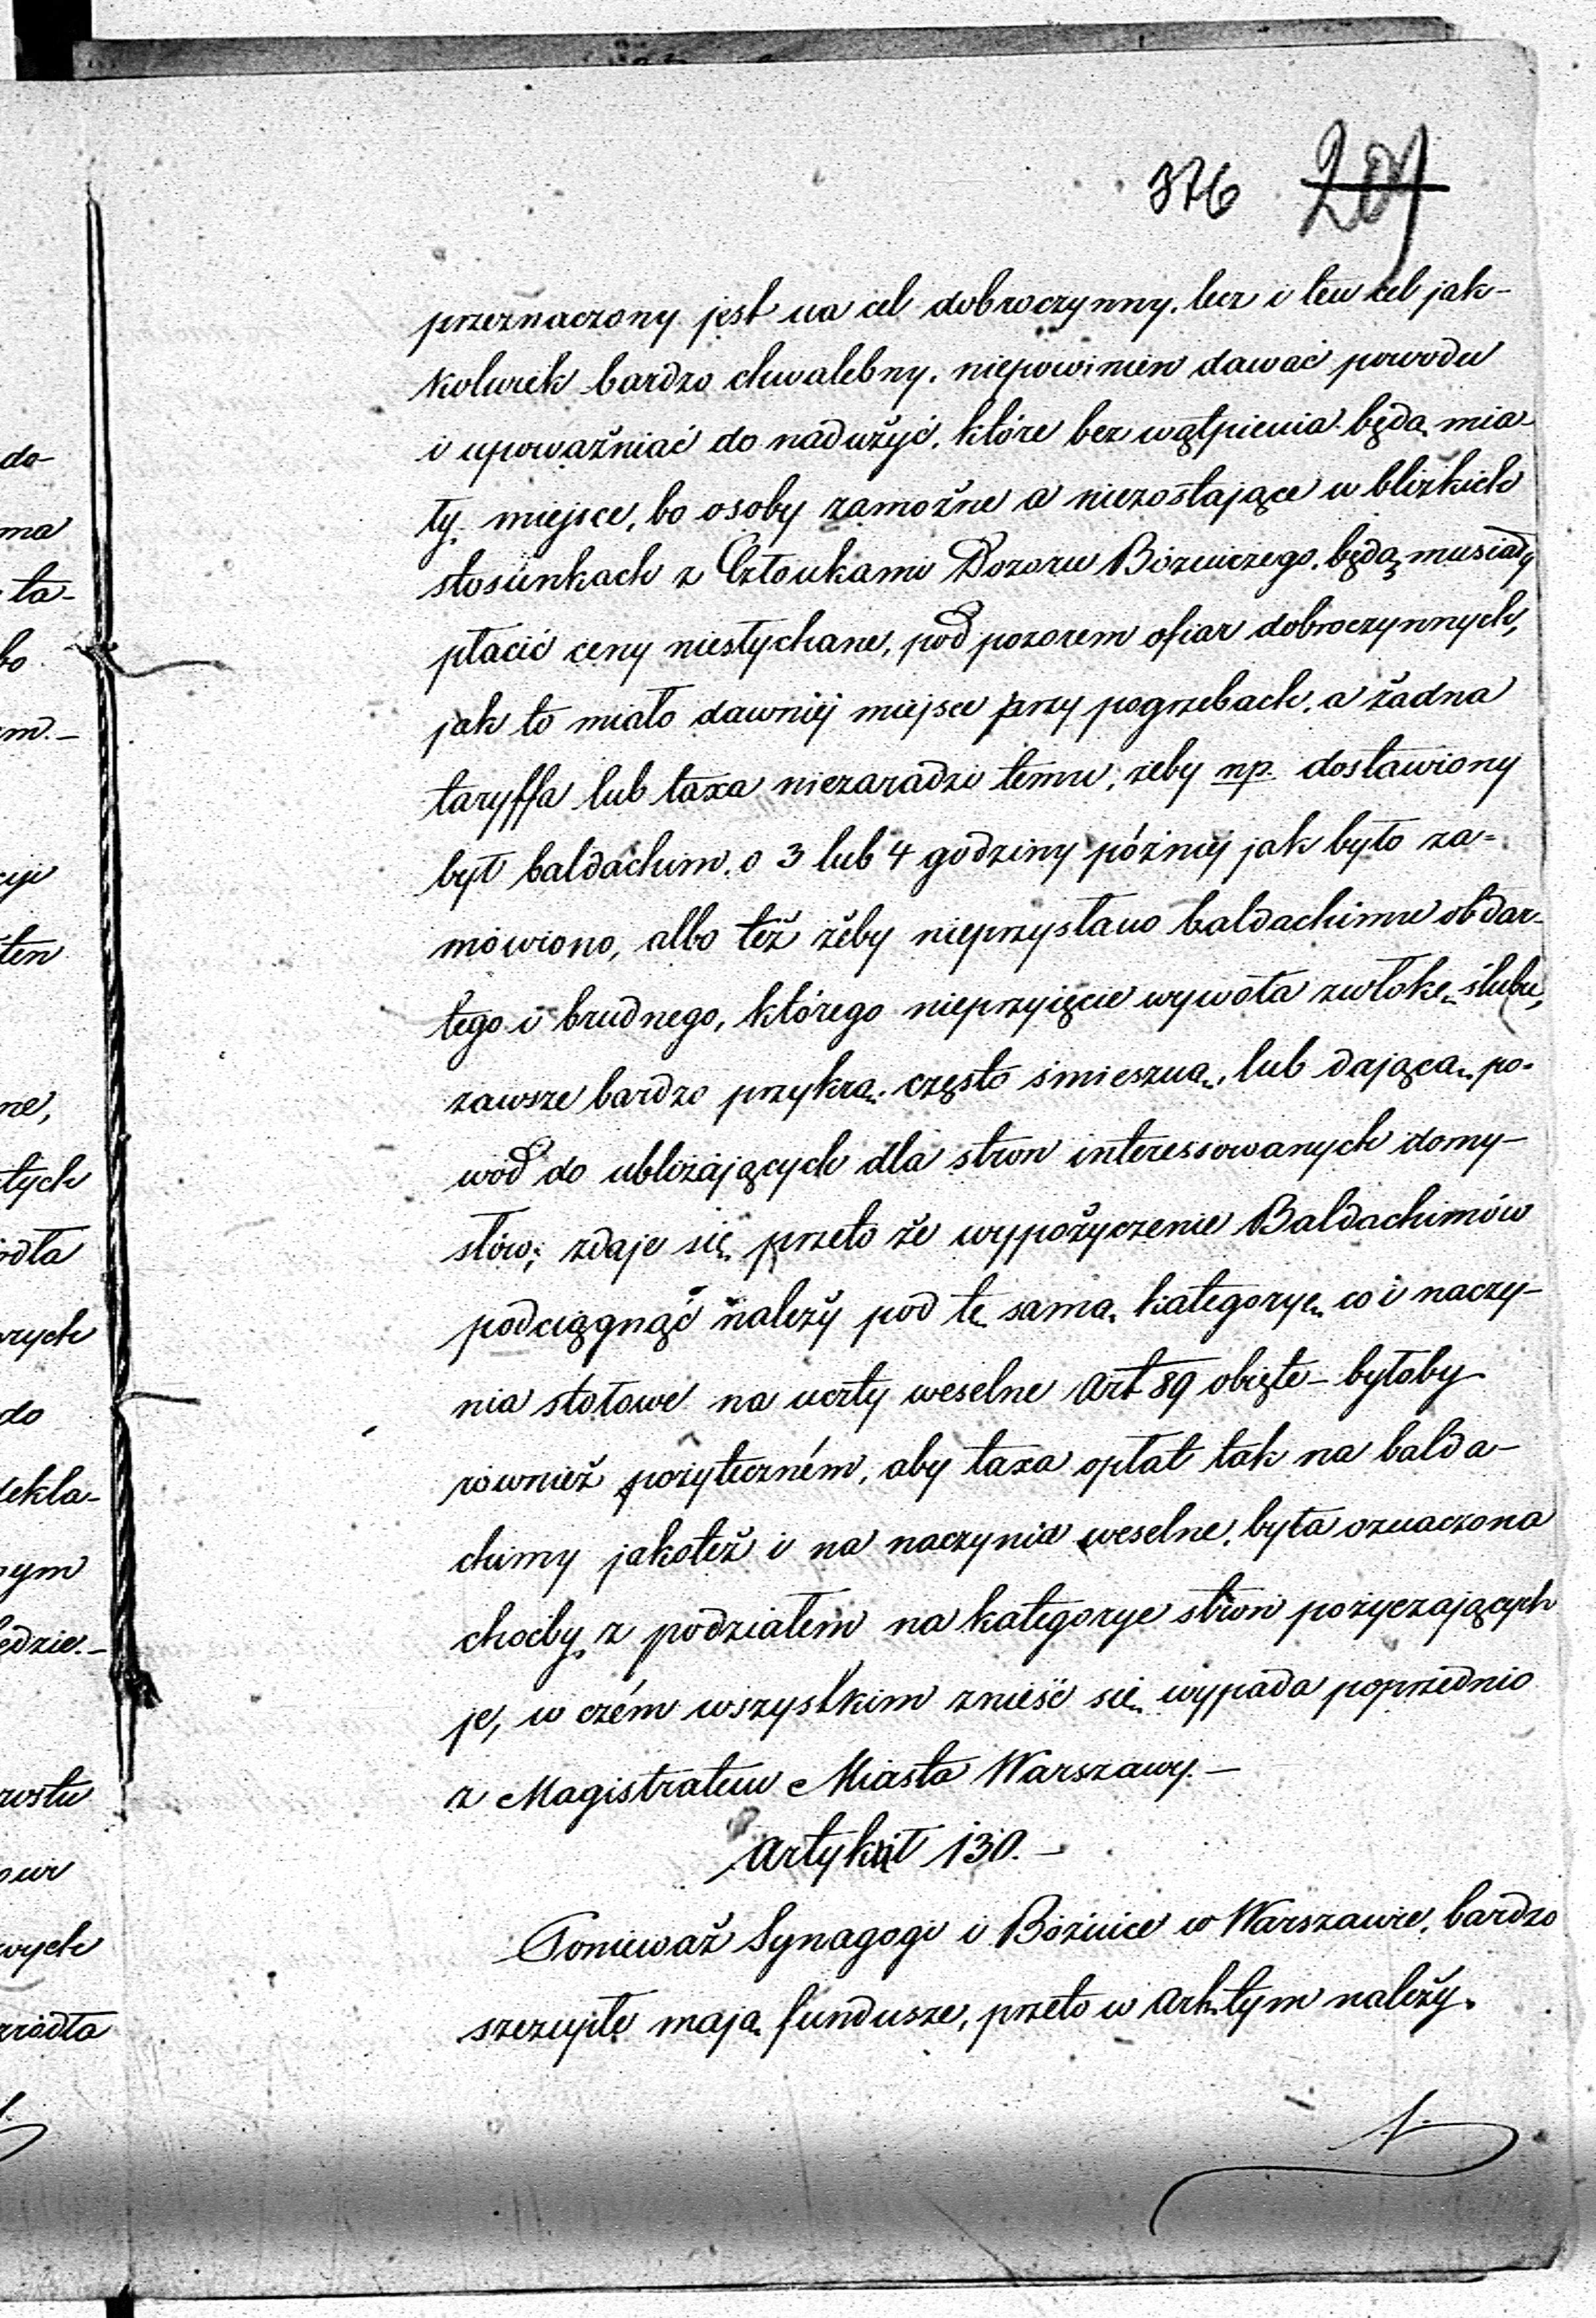 376 209
przeznaczony jest na cel dobroczynny. lecz i ten cel jak-
kolwiek bardzo chwalebny. niepowinien dawać powodu
i upoważniać do nadużyć. które bez wątpienia będą mia-
ły miejsce, bo osoby zamożne a niezostające w blizkich
stosunkach z Członkami Dozoru Bożniczego. będą musiały
płacić ceny niesłychane, pod pozorem ofiar dobroczynnych,
jak to miało dawniéj miejsce przy pogrzebach. a żadna
taryffa lub taxa niezaradzi temu, żeby np. dostawiony
był baldachim. o 3 lub 4 godziny późniéj jak było za=
mówiono, albo też żeby nieprzysłano baldachimu obdar-
tego i brudnego, którego nieprzyięcie wywoła zwłokę ślubu,
zawsze bardzo przykrą. często śmieszną, lub dającą po-
wód do ubliżających dla stron interessowanych domy-
słów; zdaje się przeto że wypożyczenie Baldachimów
podciągnąć należy pod tę samą kategoryę co i naczy-
nia stołowe na uczty weselne Art 89 obięte – byłoby
również pożyteczném, aby taxa opłat tak na balda-
chimy jakoteż i na naczynia weselne. była oznaczona
choćby z podziałem na kategorye stron pożyczających
je, w czém wszystkim znieść się wypada poprzednio
z Magistratem Miasta Warszawy. –
Artykuł 130. –
Ponieważ Synagogi i Bóżnice w Warszawie, bardzo
szczupłe mają fundusze, przeto w Art. tym należy
do-
ma
ta-
ko
em. –
cyi
ten
ne,
łych
ódła
wych
do
dekla-
nym
będzie. –
zrostu
owi
wych
źródła